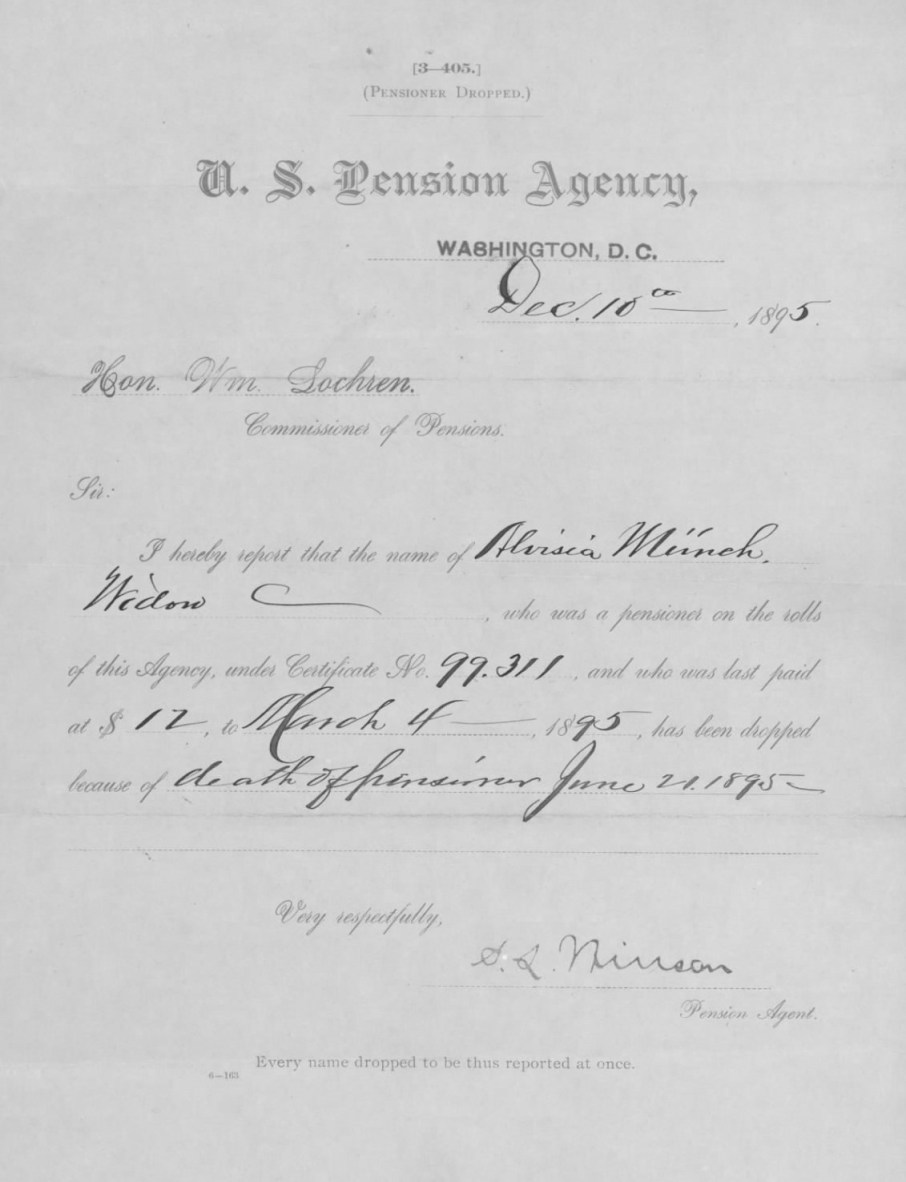 [3—405.]
(PENSIONER DROPPED.)
U. S. Pension Agency,
WASHINGTON, D. C.
Dec. 10th, 1895.
Hon. Wm. Lochren.
Commissioner of Pensions.
Sir:
I hereby report that the name of Alvisia Münch,
Widow, who was a pensioner on the rolls
of this Agency, under Certificate No. 99.311, and who was last paid
at $ 12, to March 4, 1895, has been dropped
because of death of pensioner June 21. 1895
Very respectfully,
S. L. Willson
Pension Agent.
Every name dropped to be thus reported at once.
6—163